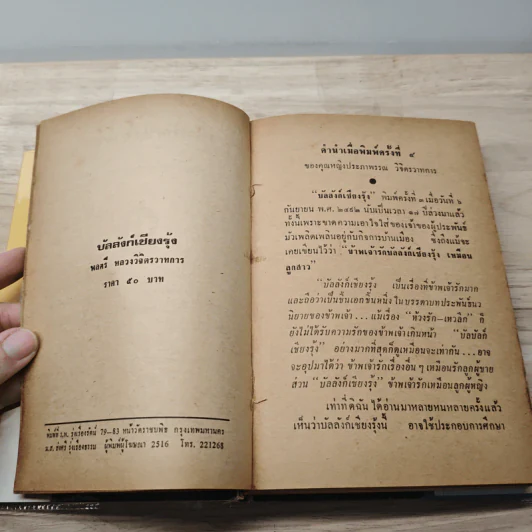 บัลลังก์เชียงรุ้ง
พลตรี หลวงวิจิตรวาทการ
ราคา ๕๐ บาท
พิมพ์ที่ ร.พ. รุ่งเรืองรัตน์ 79-83 หน้าวัดราชบพิธ กรุงเทพมหานคร
น.ส. รัศรี รุ่งเรืองธรรม ผู้พิมพ์ผู้โฆษณา 2516 โทร. 221268
คำนำเมื่อพิมพ์ครั้งที่ ๔
ของคุณหญิงประภาพรรณ วิจิตรวาทการ
"บัลลังก์เชียงรุ้ง" พิมพ์ครั้งที่ ๓ เมื่อวันที่ ๖
กันยายน พ.ศ. ๒๔๙๒ นับเป็นเวลา ๑๗ ปีล่วงมาแล้ว
ทั้งนี้เพราะขาดความเอาใจใส่ของเจ้าของผู้ประพันธ์
มัวเพลิดเพลินอยู่กับกิจการบ้านเมือง ซึ่งถึงแม้จะ
เคยเขียนไว้ว่า "ข้าพเจ้ารักบัลลังก์เชียงรุ้ง เหมือน
ลูกสาว"
"บัลลังก์เชียงรุ้ง เป็นเรื่องที่ข้าพเจ้ารักมาก
และถือว่าเป็นชิ้นเอกชิ้นหนึ่ง ในบรรดาบทประพันธ์นว
นิยายของข้าพเจ้า...แม้เรื่อง "ห้วงรัก-เหวลึก" ก็
ยังไม่ได้รับความรักของข้าพเจ้าเกินหน้า "บัลลังก์
เชียงรุ้ง" อย่างมากที่สุดก็ดูเหมือนจะเท่ากัน...อาจ
จะอุปมาได้ว่า ข้าพเจ้ารักเรื่องอื่น ๆ เหมือนรักลูกผู้ชาย
ส่วน "บัลลังก์เชียงรุ้ง" ข้าพเจ้ารักเหมือนลูกผู้หญิง
เท่าที่ดิฉัน ได้อ่านมาหลายหนหลายครั้งแล้ว
เห็นว่าบัลลังก์เชียงรุ้งนี้ อาจใช้ประกอบการศึกษา